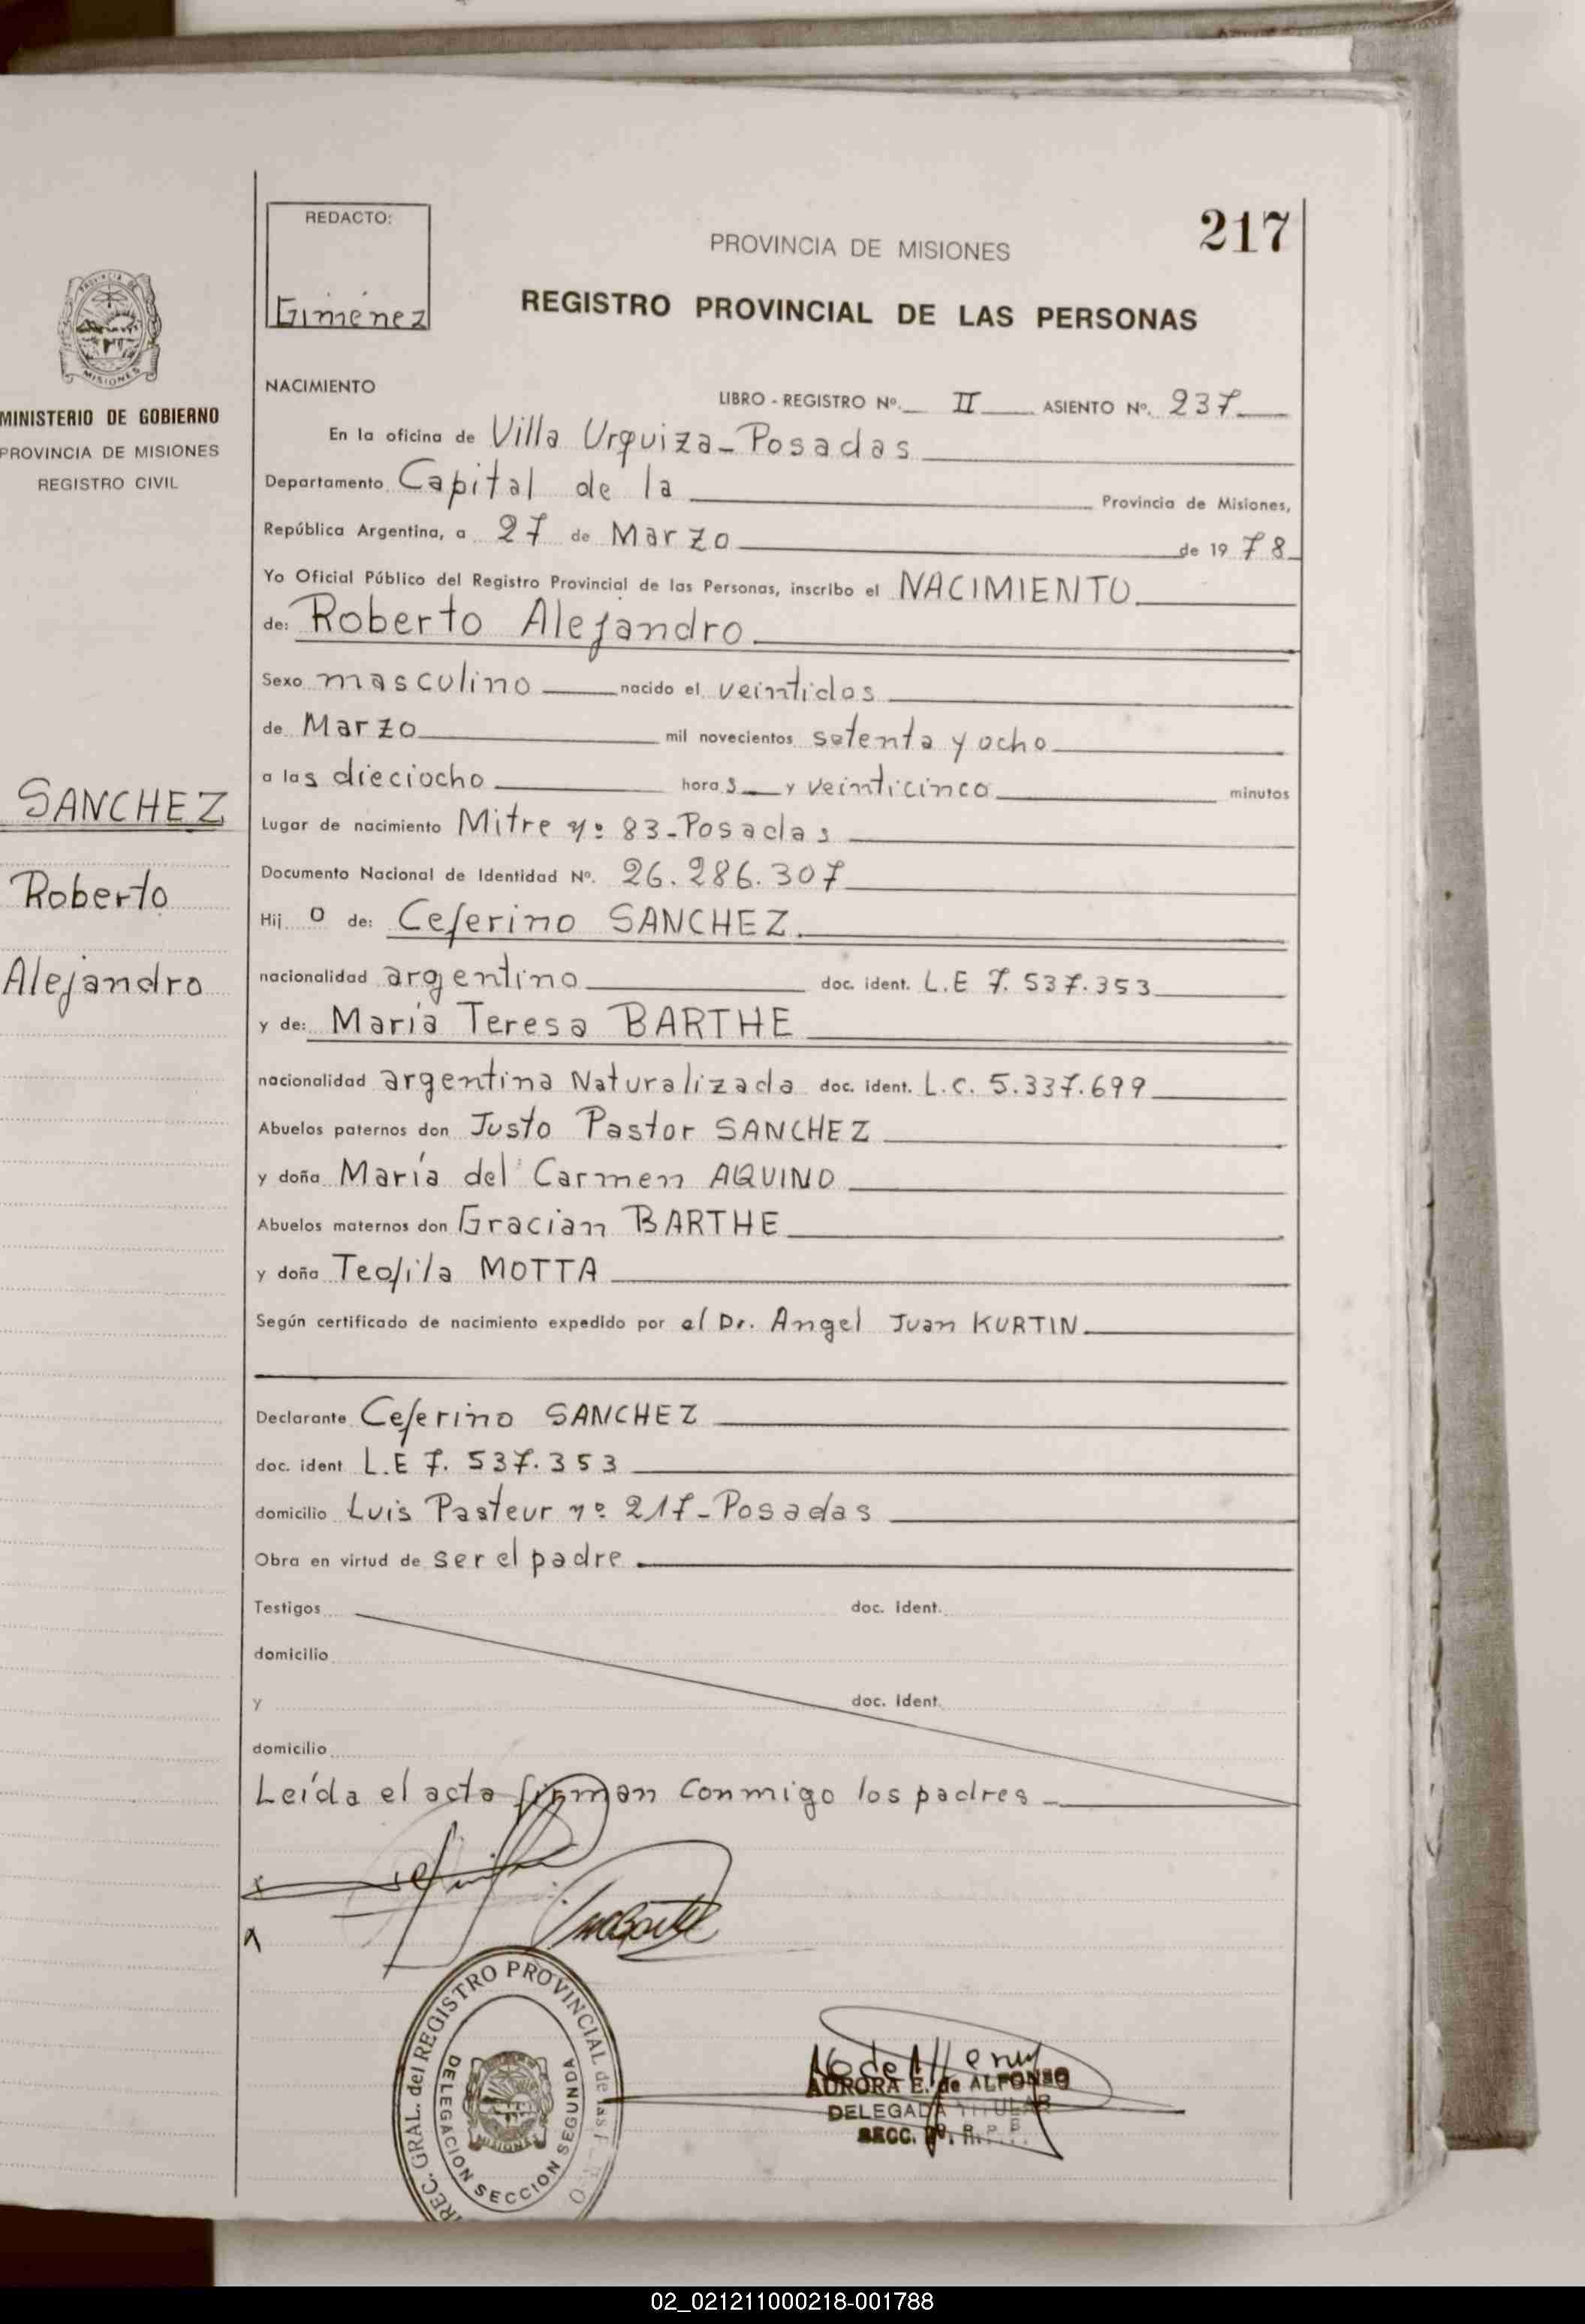 MINISTERIO DE GOBIERNO
PROVINCIA DE MISIONES
REGISTRO CIVIL
SANCHEZ
Roberto
Alejandro
REDACTO:
Giménez
PROVINCIA DE MISIONES
217
REGISTRO PROVINCIAL DE LAS PERSONAS
NACIMIENTO
LIBRO - REGISTRO Nº. II ASIENTO Nº. 237
En la oficina de Villa Urquiza - Posadas
Departamento Capital de la Provincia de Misiones,
República Argentina, a 27 de Marzo de 1978
Yo Oficial Público del Registro Provincial de las Personas, inscribo el NACIMIENTO
de: Roberto Alejandro
Sexo masculino nacido el veintidos
de Marzo mil novecientos setenta y ocho
a las dieciocho horas y veinticinco minutos
Lugar de nacimiento Mitre nº 83 - Posadas
Documento Nacional de Identidad Nº. 26.286.307
Hijo de: Ceferino SANCHEZ.
nacionalidad argentino doc. ident. L.E 7.537.353
y de: María Teresa BARTHE
nacionalidad argentina Naturalizada doc. ident. L.C. 5.337.699
Abuelos paternos don Justo Pastor SANCHEZ
y doña María del Carmen AQUINO
Abuelos maternos don Gracian BARTHE
y doña Teofila MOTTA
Según certificado de nacimiento expedido por el Dr. Angel Juan KURTIN.
Declarante Ceferino SANCHEZ
doc. ident L.E 7.537.353
domicilio Luis Pasteur nº 217 - Posadas
Obra en virtud de ser el padre.
Testigos doc. ident.
domicilio
y doc. ident.
domicilio
Leída el acta firman conmigo los padres -
REC. GRAL. del REGISTRO PROVINCIAL de las
DELEGACION SECCION SEGUNDA
MISIONES
AURORA E. de ALFONSO
DELEGADA TITULAR
SECC.
02_021211000218-001788